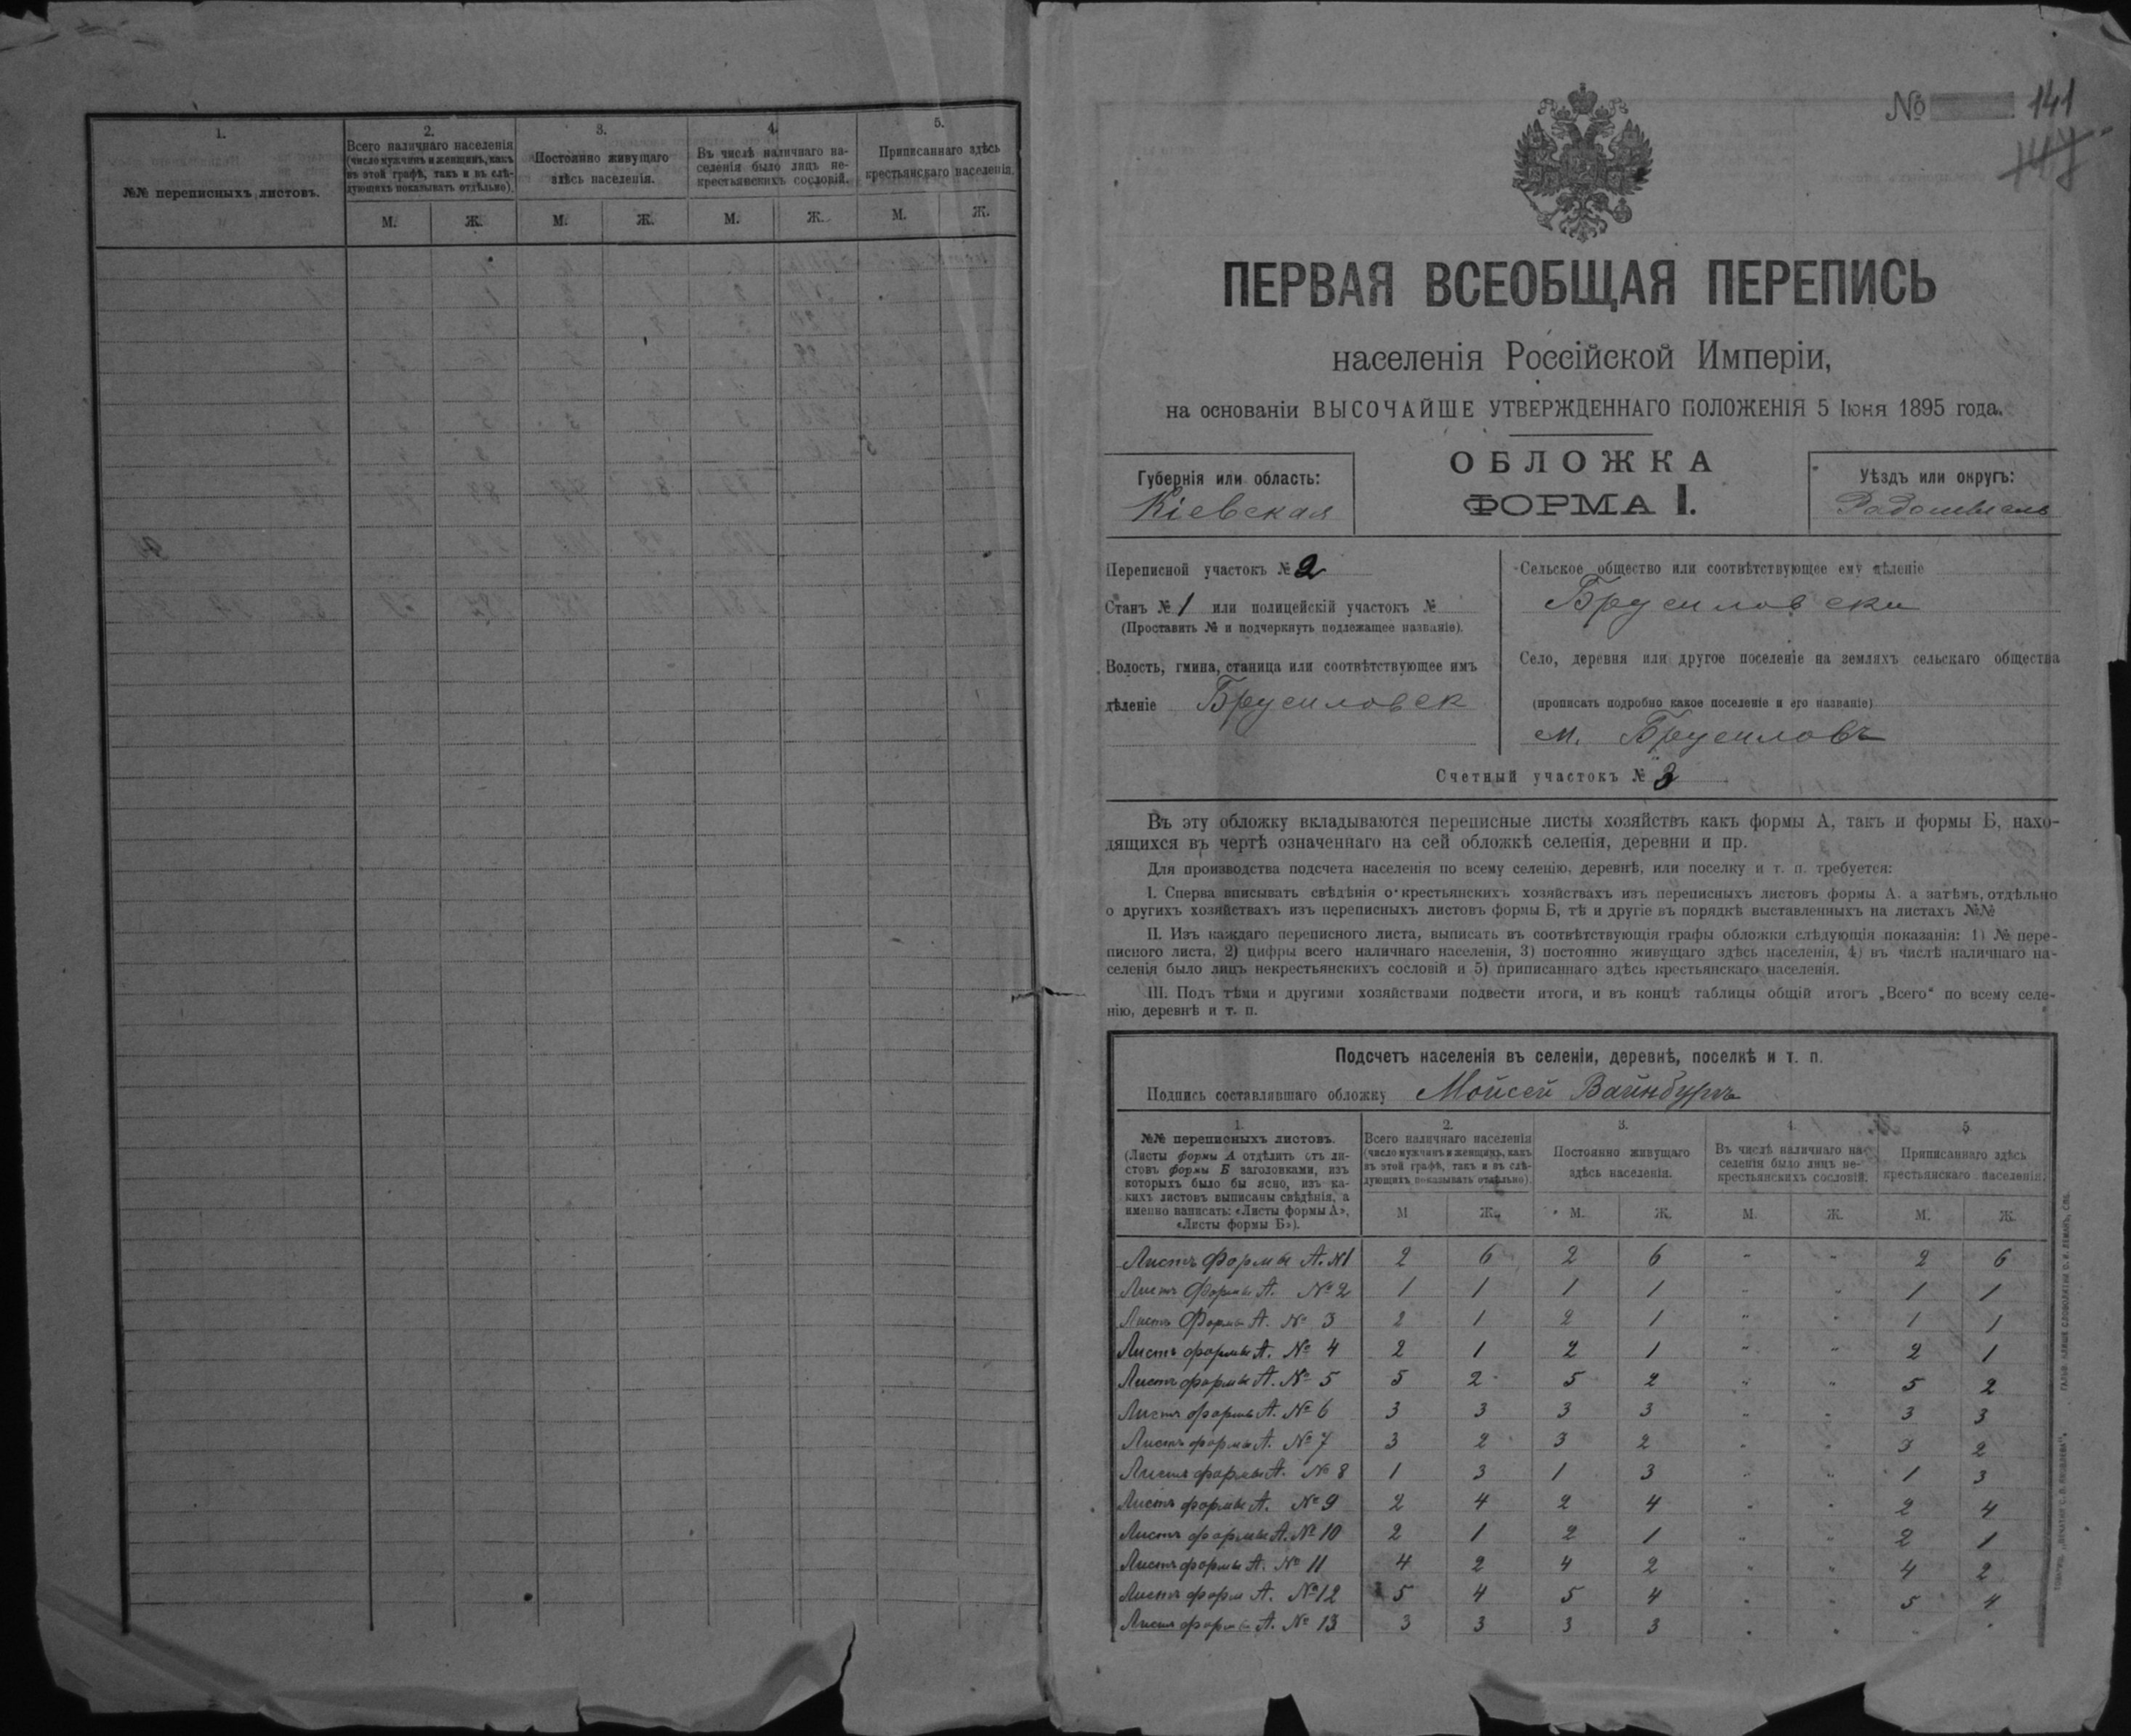 1.
№№ переписныхъ листовъ.
2.
Всего наличнаго населенія
(число мужчинъ и женщинъ, какъ
въ этой графѣ, такъ и въ слѣ-
дующихъ показывать отдѣльно).
3.
Постоянно живущаго
здѣсь населенія.
4.
Въ числѣ наличнаго на-
селенія было лицъ не-
крестьянскихъ сословій.
5.
Приписаннаго здѣсь
крестьянскаго населенія.
М. Ж. М. Ж. М. Ж. М. Ж.
№ 141
ПЕРВАЯ ВСЕОБЩАЯ ПЕРЕПИСЬ
населенія Россійской Имперіи,
на основаніи ВЫСОЧАЙШЕ УТВЕРЖДЕННАГО ПОЛОЖЕНІЯ 5 Іюня 1895 года.
ОБЛОЖКА
ФОРМА I.
Губернія или область:
Кіевская
Уѣздъ или округъ:
Радомысль
Переписной участокъ № 2
Станъ № 1 или полицейскій участокъ №
(Проставить № и подчеркнуть подлежащее названіе).
Волость, гмина, станица или соотвѣтствующее имъ
дѣленіе Брусиловск
Сельское общество или соотвѣтствующее ему дѣленіе
Брусиловски
Село, деревня или другое поселеніе на земляхъ сельскаго общества
(прописать подробно какое поселеніе и его названіе)
м. Брусиловъ
Счетный участокъ № 3
Въ эту обложку вкладываются переписные листы хозяйствъ какъ формы А, такъ и формы Б, нахо-
дящихся въ чертѣ означеннаго на сей обложкѣ селенія, деревни и пр.
Для производства подсчета населенія по всему селенію, деревнѣ, или поселку и т. п. требуется:
I. Сперва вписывать свѣдѣнія о крестьянскихъ хозяйствахъ изъ переписныхъ листовъ формы А, а затѣмъ, отдѣльно
о другихъ хозяйствахъ изъ переписныхъ листовъ формы Б, тѣ и другіе въ порядкѣ выставленныхъ на листахъ №№
II. Изъ каждаго переписного листа, выписать въ соотвѣтствующія графы обложки слѣдующія показанія: 1) № пере-
писного листа, 2) цифры всего наличнаго населенія, 3) постоянно живущаго здѣсь населенія, 4) въ числѣ наличнаго на-
селенія было лицъ некрестьянскихъ сословій и 5) приписаннаго здѣсь крестьянскаго населенія.
III. Подъ тѣми и другими хозяйствами подвести итоги, и въ концѣ таблицы общій итогъ „Всего“ по всему селе-
нію, деревнѣ и т. п.
Подсчетъ населенія въ селеніи, деревнѣ, поселкѣ и т. п.
Подпись составлявшаго обложку Мойсей Вайнбургъ
1.
№№ переписныхъ листовъ.
(Листы формы А отдѣлить отъ ли-
стовъ формы Б заголовками, изъ
которыхъ было бы ясно, изъ ка-
кихъ листовъ выписаны свѣдѣнія, а
именно написать: «Листы формы А»,
«Листы формы Б»).
2.
Всего наличнаго населенія
(число мужчинъ и женщинъ, какъ
въ этой графѣ, такъ и въ слѣ-
дующихъ показывать отдѣльно).
3.
Постоянно живущаго
здѣсь населенія.
4.
Въ числѣ наличнаго на-
селенія было лицъ не-
крестьянскихъ сословій.
5
Приписаннаго здѣсь
крестьянскаго населенія.
М Ж. М. Ж. М. Ж. М. Ж.
Листъ Формы А. №1 2 6 2 6 " " 2 6
Листъ Формы А. № 2 1 1 1 1 " " 1 1
Листъ Формы А. № 3 2 1 2 1 " " 1 1
Листъ формы А. № 4 2 1 2 1 " " 2 1
Листъ формы А. № 5 5 2 5 2 " " 5 2
Листъ формы А. № 6 3 3 3 3 " " 3 3
Листъ формы А. № 7 3 2 3 2 " " 3 2
Листъ формы А. № 8 1 3 1 3 " " 1 3
Листъ формы А. № 9 2 4 2 4 " " 2 4
Листъ формы А. № 10 2 1 2 1 " " 2 1
Листъ формы А. № 11 4 2 4 2 " " 4 2
Листъ форм А. № 12 5 4 5 4 " " 5 4
Листъ формы А. № 13 3 3 3 3 " " " "